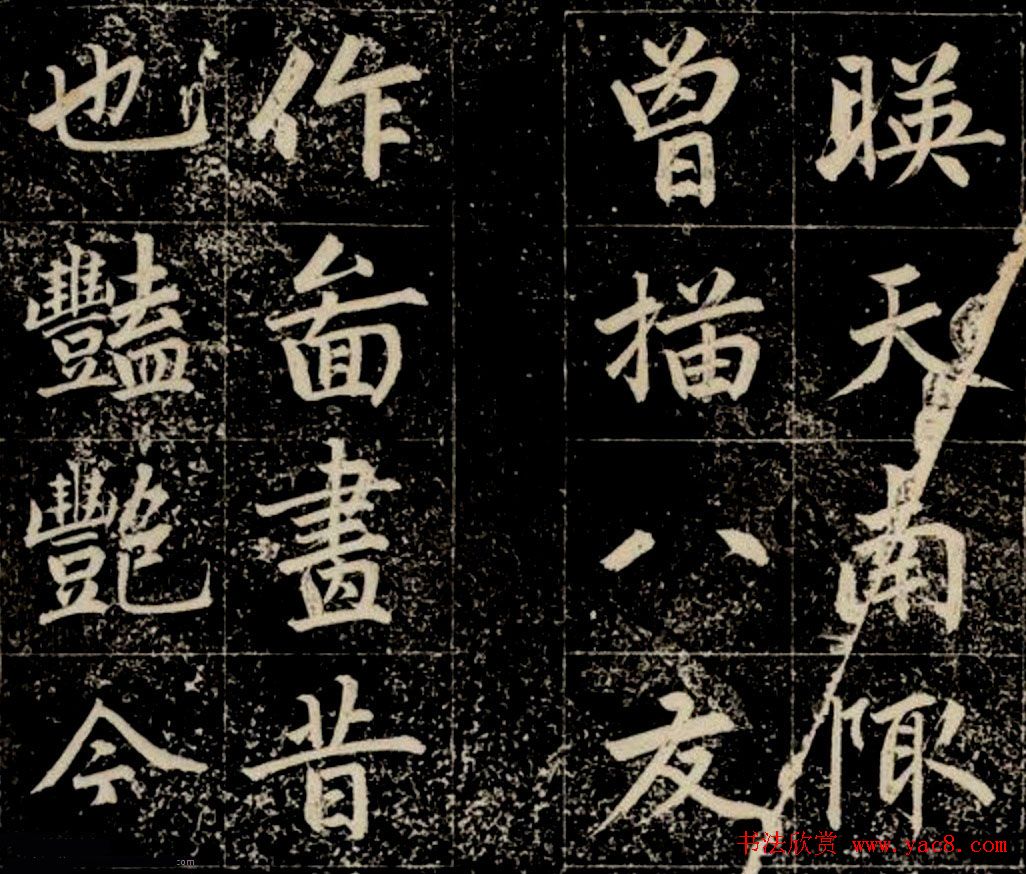 暎天南
曾描八友
作畫昔
也豔艷今
书法欣赏 www.yac8.com